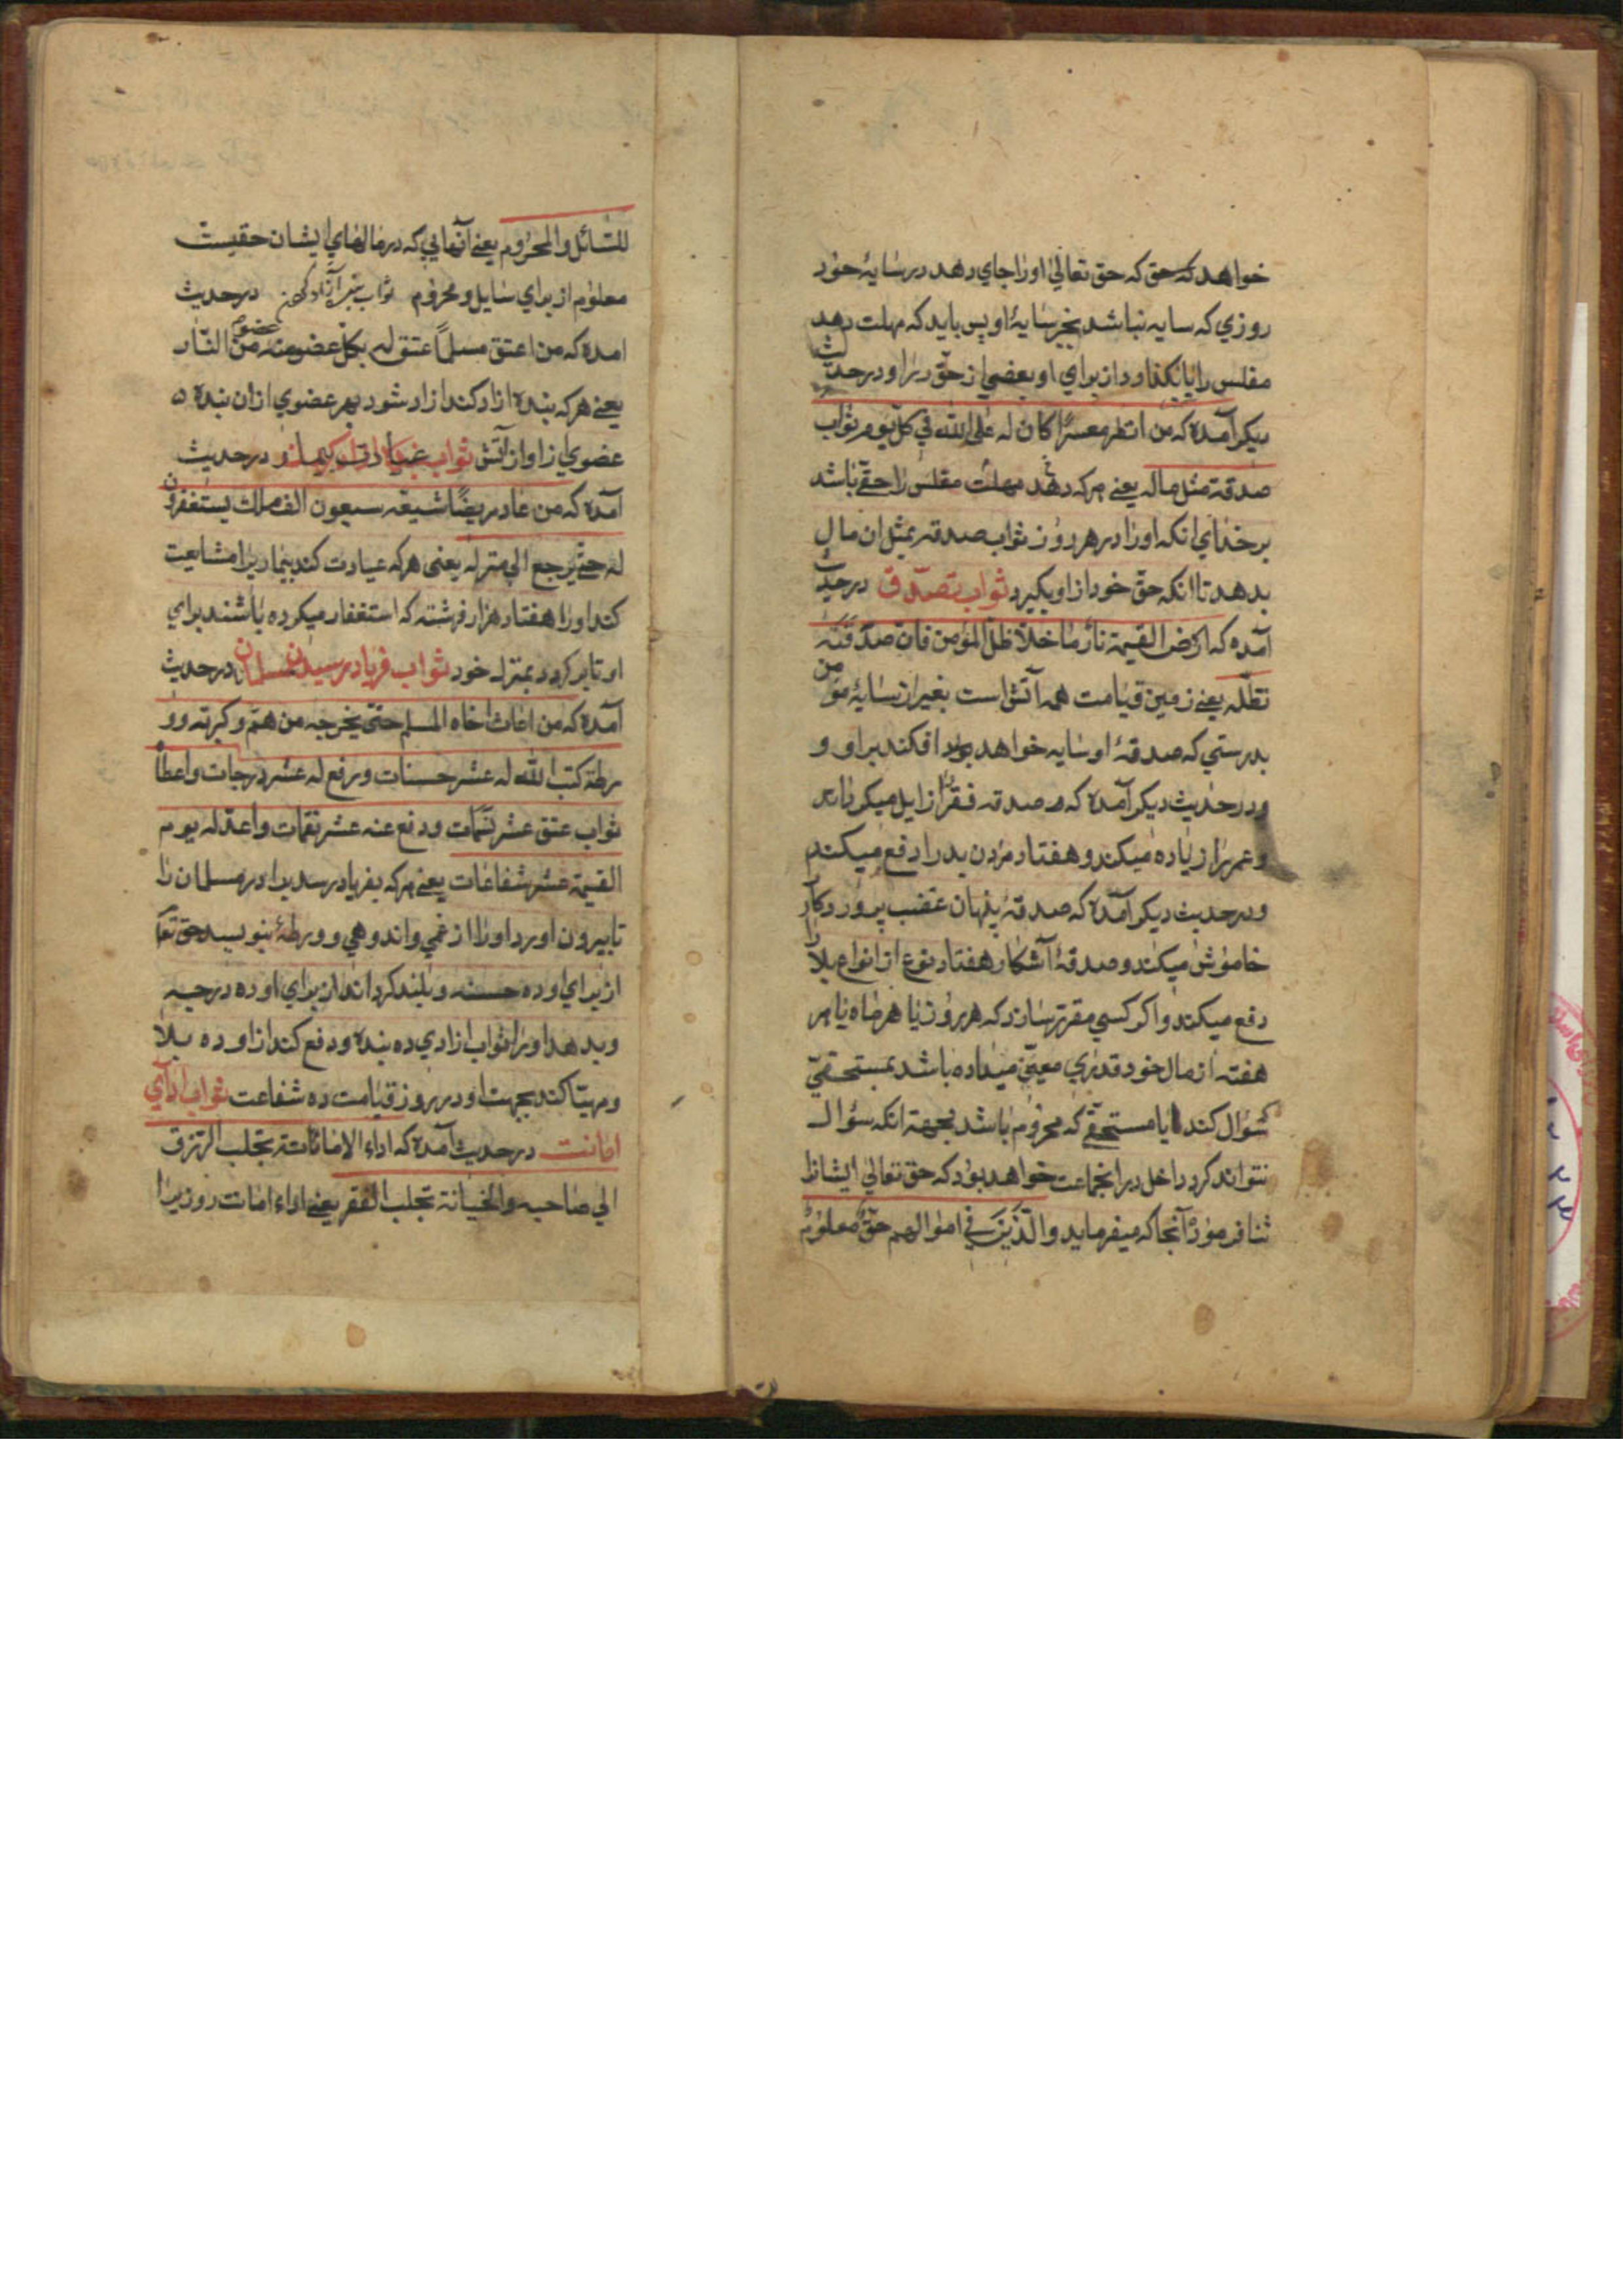 خواهد که حق که حق تعالی اورا جای دهد در سایهٔ خود
روزی که سایه نباشد بجز سایهٔ او پس باید که مهلت دهد
مفلس را یا بگذارد از برای او بعضی از حق را و در حدیث
دیگر آمده که من انظر معسرًا کان له علی الله في کل یوم ثواب
صدقة مثل ماله یعنی هر که دهد مهلت مفلس را حقی باشد
بر خدای انکه اورا در هر روز ثواب صدقه بمثل ان مال
بدهد تا انکه حق خود از او بگیرد ثواب تصدق در حدیث
آمده که ارض القیمة نار ما خلا ظل المؤمن فان صدقته
تظله یعنی زمین قیامت همه آتش است بغیر از سایهٔ مؤمن
بدرستی که صدقهٔ او سایه خواهد افکند بر او و
و در حدیث دیگر آمده که صدقه فقر را زایل میکرداند
و عمر را زیاده میکند و هفتاد مردن بد را دفع میکند
و در حدیث دیگر آمده که صدقهٔ پنهان غضب پروردکار را
خاموش میکند و صدقهٔ آشکار هفتاد نوع از انواع بلا را
دفع میکند و اکر کسی مقرر سازد که هر روز یا هر ماه یا هر
هفته از مال خود قدری معین میداده باشد بمستحقی
سؤال کند یا مستحقی که محروم باشد بجهة انکه سؤال
نتواند کرد داخل در انجماعت خواهد بود که حق تعالی ایشانرا
ثنا فرموده آنجا که میفرماید والذین في اموالهم حق معلوم
للسائل والمحروم یعنی آنهایی که در مالهای ایشان حقیست
معلوم از برای سایل و محروم ثواب بنده آزاد کردن در حدیث
امده که من اعتق مسلمًا عتق له بکل عضو منه عضو من النار
یعنی هر که بنده ازاد کند ازاد شود بهر عضوی ازان بنده
عضوی از او از آتش ثواب عیادت بیمار در حدیث
آمده که من عاد مریضًا شیعه سبعون الف ملک یستغفرون
له حتی یرجع الی منزله یعنی هر که عیادت کند بیماریرا مشایعت
کند اورا هفتاد هزار فرشته که استغفار میکرده باشند برای
او تا برکردد بمنزله خود ثواب فریاد رسیدن مسلمان در حدیث
آمده که من اغاث اخاه المسلم حتی یخرجه من هم و کربته و و
رطة کتب الله له عشر حسنات و رفع له عشر درجات و اعطاه
ثواب عتق عشر نسمات و دفع عنه عشر نقمات و اعد له یوم
القیمة عشر شفاعات یعنی هر که بفریاد رسد برادر مسلمان را
تا بیرون اورد اورا از غمی و اندوهی و ورطهٔ بنویسد حق تعا
از برای او ده حسنه و بلند کرداند از برای او ده درجه
و بدهد او را ثواب ازادی ده بنده و دفع کند از او ده بلا
و مهیا کند بجهت او در روز قیامت ده شفاعت ثواب ادای
امانت در حدیث آمده که اداء الامانة تجلب الرزق
الی صاحبه والخیانة تجلب الفقر یعنی اداء امانت روزیرا